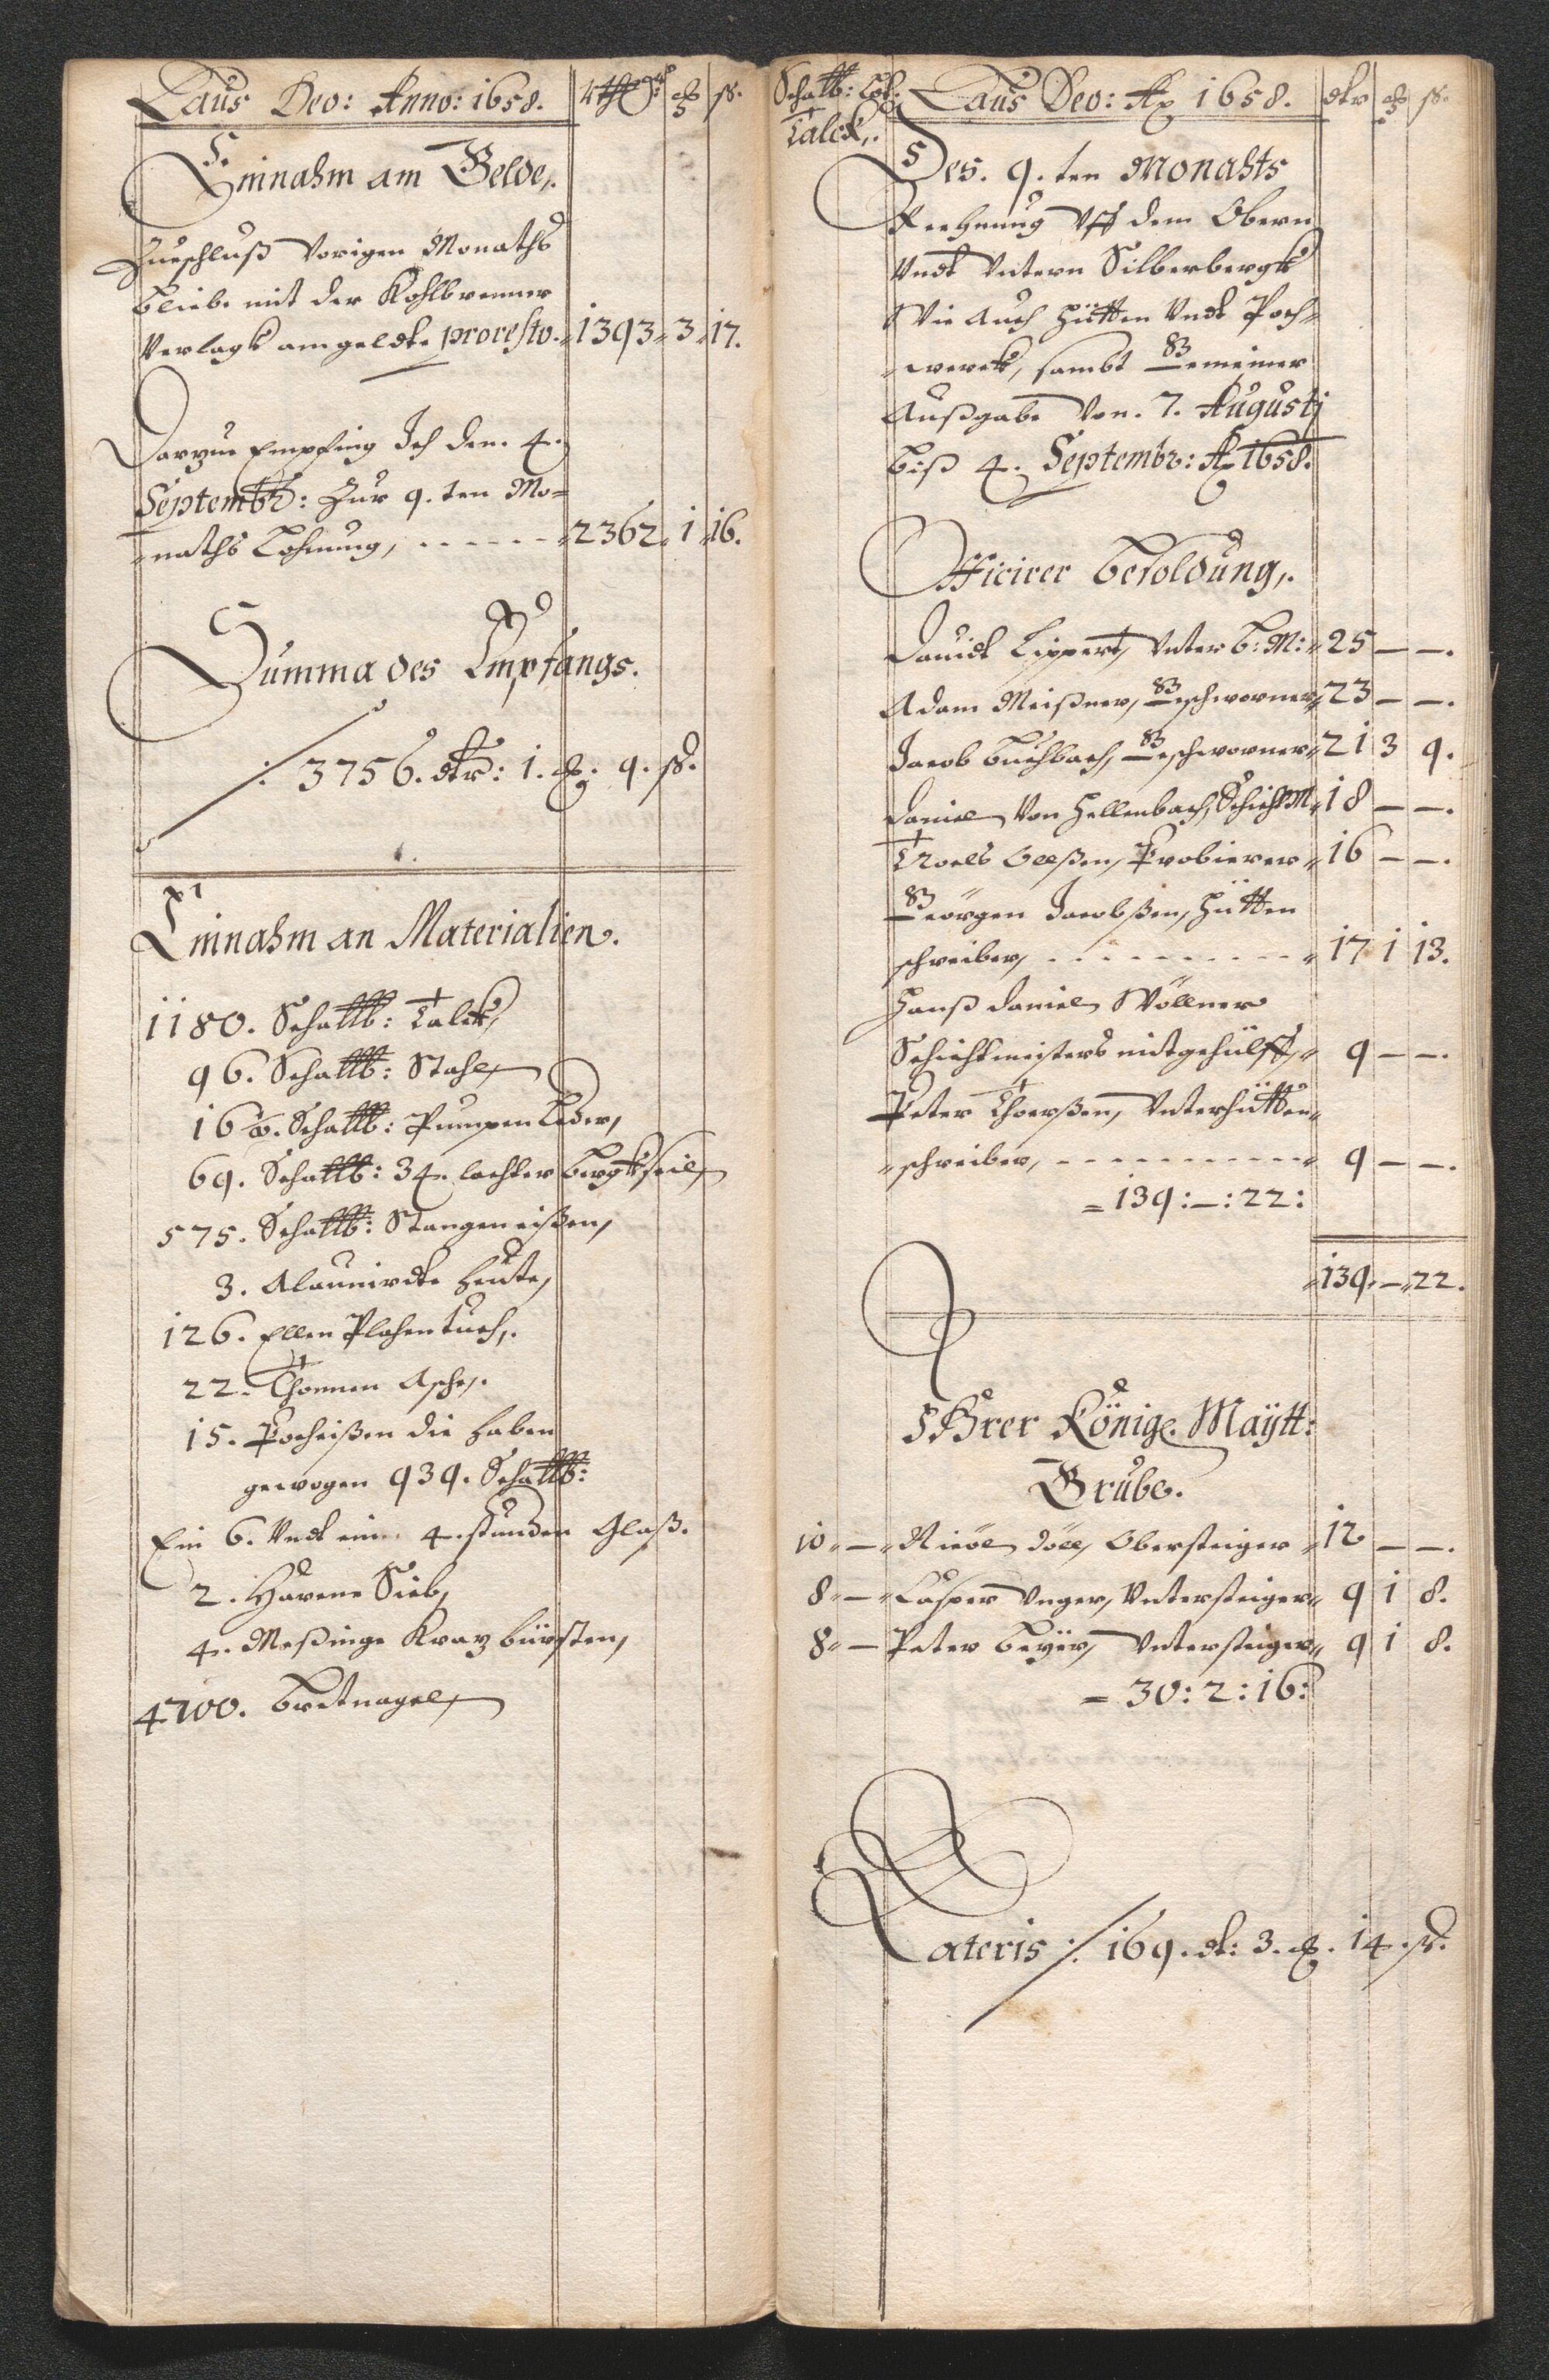 Laus Deo: Anno: 1658. Rthlr: ß.
Einnahm am Gelde,.
Zueschluß Vorigen Monaths
bliebe mit der Kohlbrenner
Verlagk am geldte proresto. 1393 3 17.
Darzue Empfing Ich den. 4.
Septembr: Zur 9.ten Mo=
naths Lohnung, - - - - - - 2362. 1 16.
Summa des Empfangs.
/: 3756. dtr: 1. 9. ß.
Einnahm an Materialien.
1180. Schallb: Talck,
96. Schallb: Stahl,
168. Schallb: Pumpen Leder,
69. Schallb: 34. lachter Bergkseil,
575. Schallb: Stangen eißen,
3. Alaunirdte heute,
126. Ellen Plahentuch,.
22. Thonnen Asche,.
15. Pocheißen die haben
gewogen 939. Schallb:
Ein 6. Undt ein 4. stunden Glaß.
2. Harene Sieb,
4. Meßinge Kraz bürsten,
4700. Bretnagel,
Schallb:
Talck,.
Laus Deo: Ao 1658. dtr ß.
Des. 9.ten Monahts
Rechnung Uff dem Obern
Undt Untern Silberbergk
Wie Auch Hütten Undt Poch=
werck, sambt Gemeiner
Außgabe Von. 7. Augustj
biß 4. Septembr: Ao 1658.
Officirer besoldung,.
Dauidt Lippert, Unter B: M: 25 — —.
Adam Meißner, Geschworner 23 — —.
Jacob Buchbach, Geschworner 21 3 9.
Daniel Von Hellenbach, SchichtM 18 — —.
Troels Oelßen, Probierer 16 — —.
Georgen Jacobßen, Hütten
schreiber, - - - - - - - - - - 17 1 13.
Hanß Daniel Wöllner
Schichtmeisters mitgehülff, 9 — —.
Peter Thorßen, Unterhütten=
schreiber, - - - - - - - - - - 9 — —.
=139:—:22:
139. — 22.
IHrer Könige. Maÿtt:
Grube.
10 — Nicöl Döll, Obersteiger 12 — —.
8 — Casper Unger, Untersteiger 9 1 8.
8 — Peter Beyer, Untersteiger 9 1 8.
=30:2:16:
Lateris /: 169. dt: 3. 14. ß.